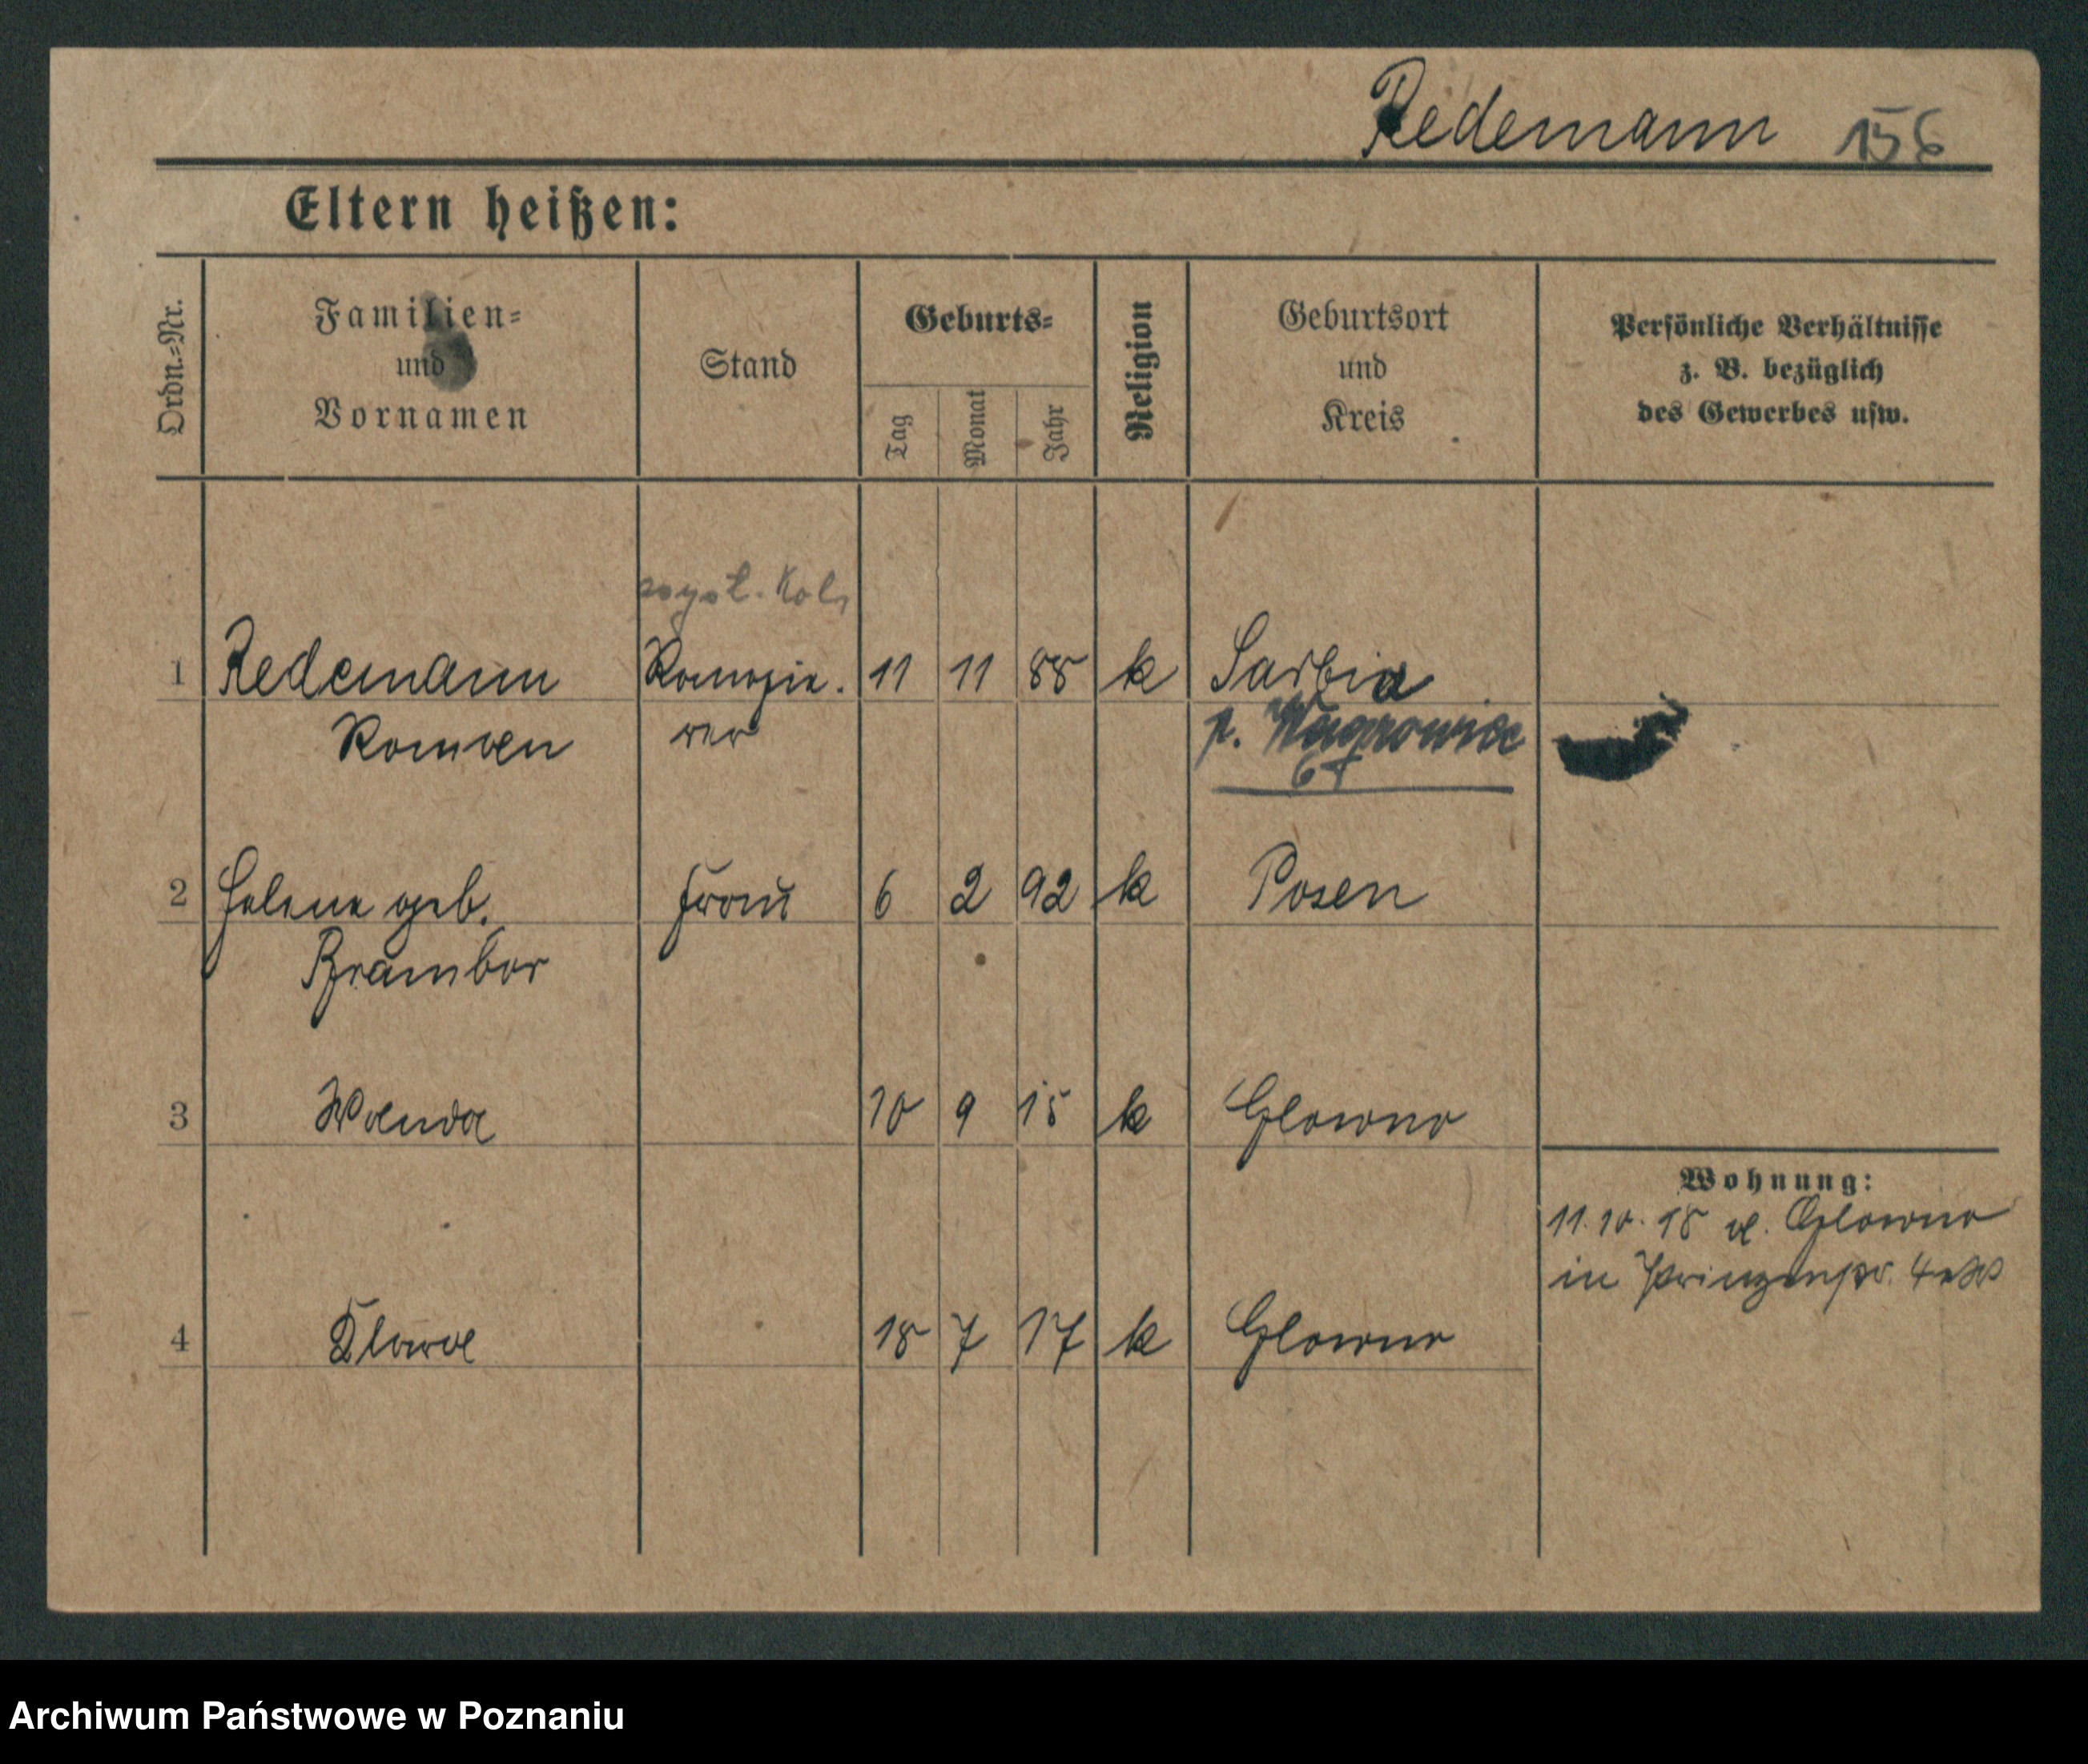 Redemann 156
Eltern heißen:
Ordn.-Nr.
Familien-
und
Vornamen
Stand
Geburts-
Tag
Monat
Jahr
Religion
Geburtsort
und
Kreis
Persönliche Verhältnisse
z. B. bezüglich
des Gewerbes usw.
1 Redemann 11 11 88 k Sarbia
Roman p. Wągrowiec
2 Helene geb. Frau 6 2 92 k Posen
Brambor
3 Wanda 10 9 15 k Glowno
Wohnung:
11.10.18 a. Glowno
in
4 Klara 18 7 17 k Glowno
Archiwum Państwowe w Poznaniu